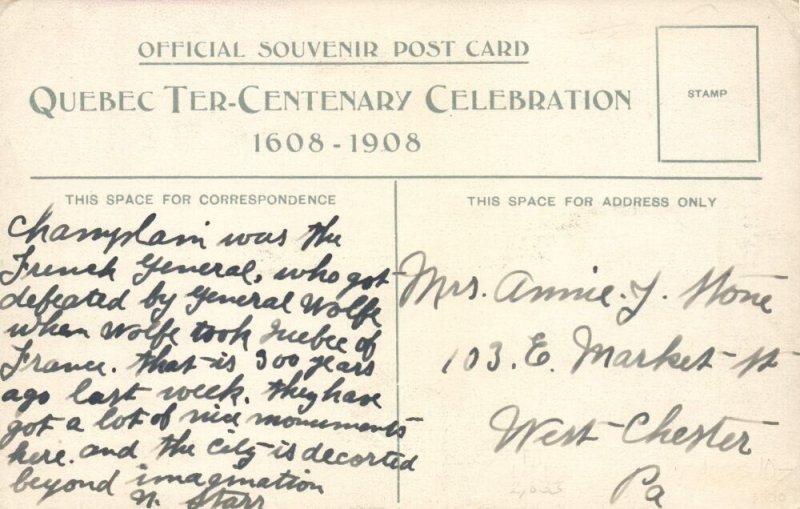 OFFICIAL SOUVENIR POST CARD
QUEBEC TER-CENTENARY CELEBRATION
1608-1908
STAMP
THIS SPACE FOR CORRESPONDENCE
Champlain was the
French General, who got
defeated by General Wolfe
when Wolfe took Quebec of
France. that is 300 years
ago last week. they have
got a lot of nice monuments
here. and the city is decorted
beyond imagination
N. Starr
THIS SPACE FOR ADDRESS ONLY
Mrs. Annie. J. Stone
103. E. Market St
West Chester
Pa